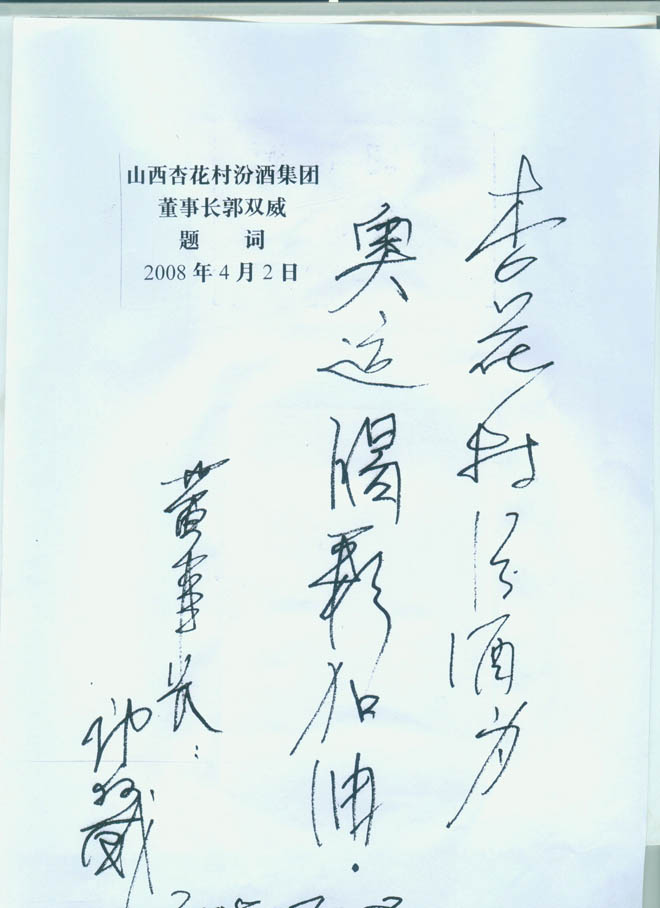 山西杏花村汾酒集团
董事长郭双威
题 词
2008年4月2日
杏花村汾酒为
奥运喝彩加油.
董事长:
郭双威